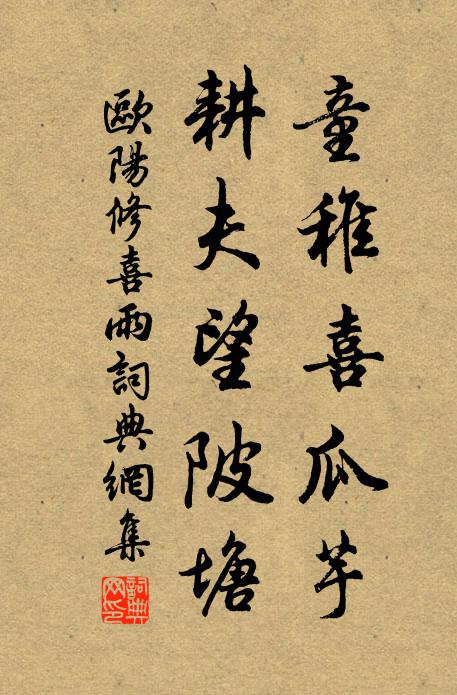 童稚喜瓜芋
耕夫望陂塘
歐陽修喜雨詞典網集
詞典网印